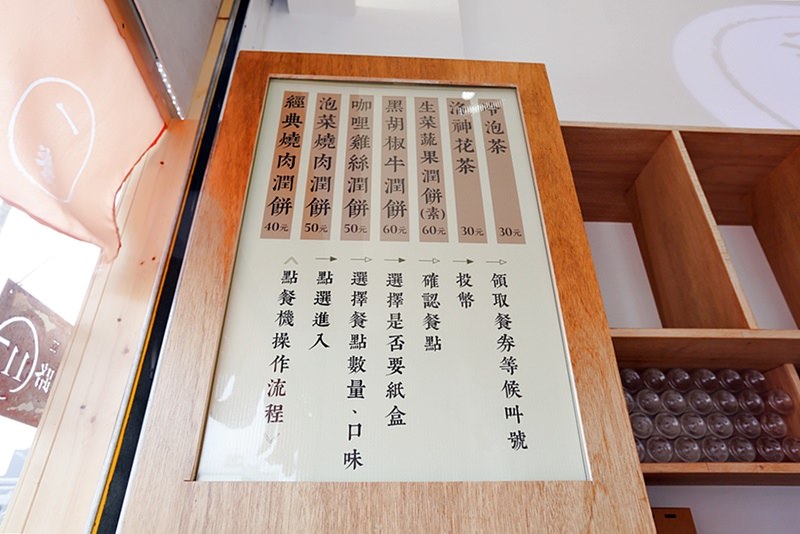 經典燒肉潤餅 40元
泡菜燒肉潤餅 50元
咖哩雞絲潤餅 50元
黑胡椒牛潤餅 60元
生菜蔬果潤餅(素) 60元
洛神花茶 30元
泡茶 30元
點餐機操作流程
點選進入
選擇餐點數量、口味
選擇是否要紙盒
確認餐點
投幣
領取餐券等候叫號